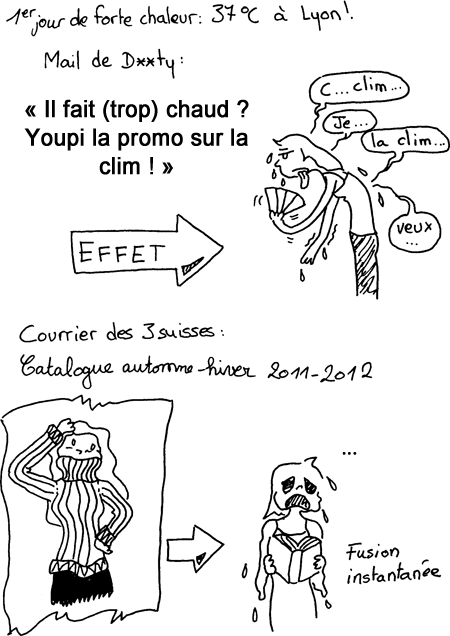 1er jour de forte chaleur: 37°C à Lyon!
Mail de D**ty:
« Il fait (trop) chaud ?
Youpi la promo sur la
clim ! »
C... clim...
Je...
la clim...
veux
...
EFFET
Courrier des 3suisses:
Catalogue automne-hiver 2011-2012
...
Fusion
instantanée